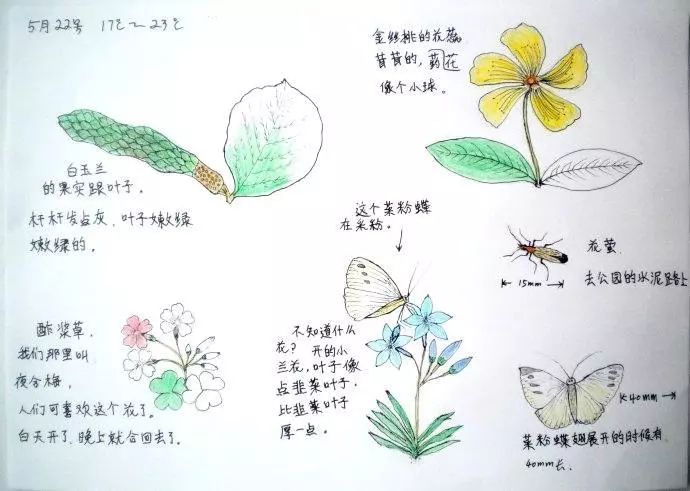 5月22号 17℃~23℃
金丝桃的花蕊
茸茸的,药花
像个小球。
白玉兰
的果实跟叶子。
杆杆发点灰、叶子嫩绿
嫩绿的。
这个菜粉蝶
在采粉。
花萤
15mm
去公园的水泥路上
酢浆草,
我们那里叫
夜合梅,
人们可喜欢这个花了。
白天开了,晚上就合回去了。
不知道什么
花? 开的小
兰花,叶子像
点韭菜叶子,
比韭菜叶子
厚一点。
40mm
菜粉蝶翅展开的时候有
40mm长、